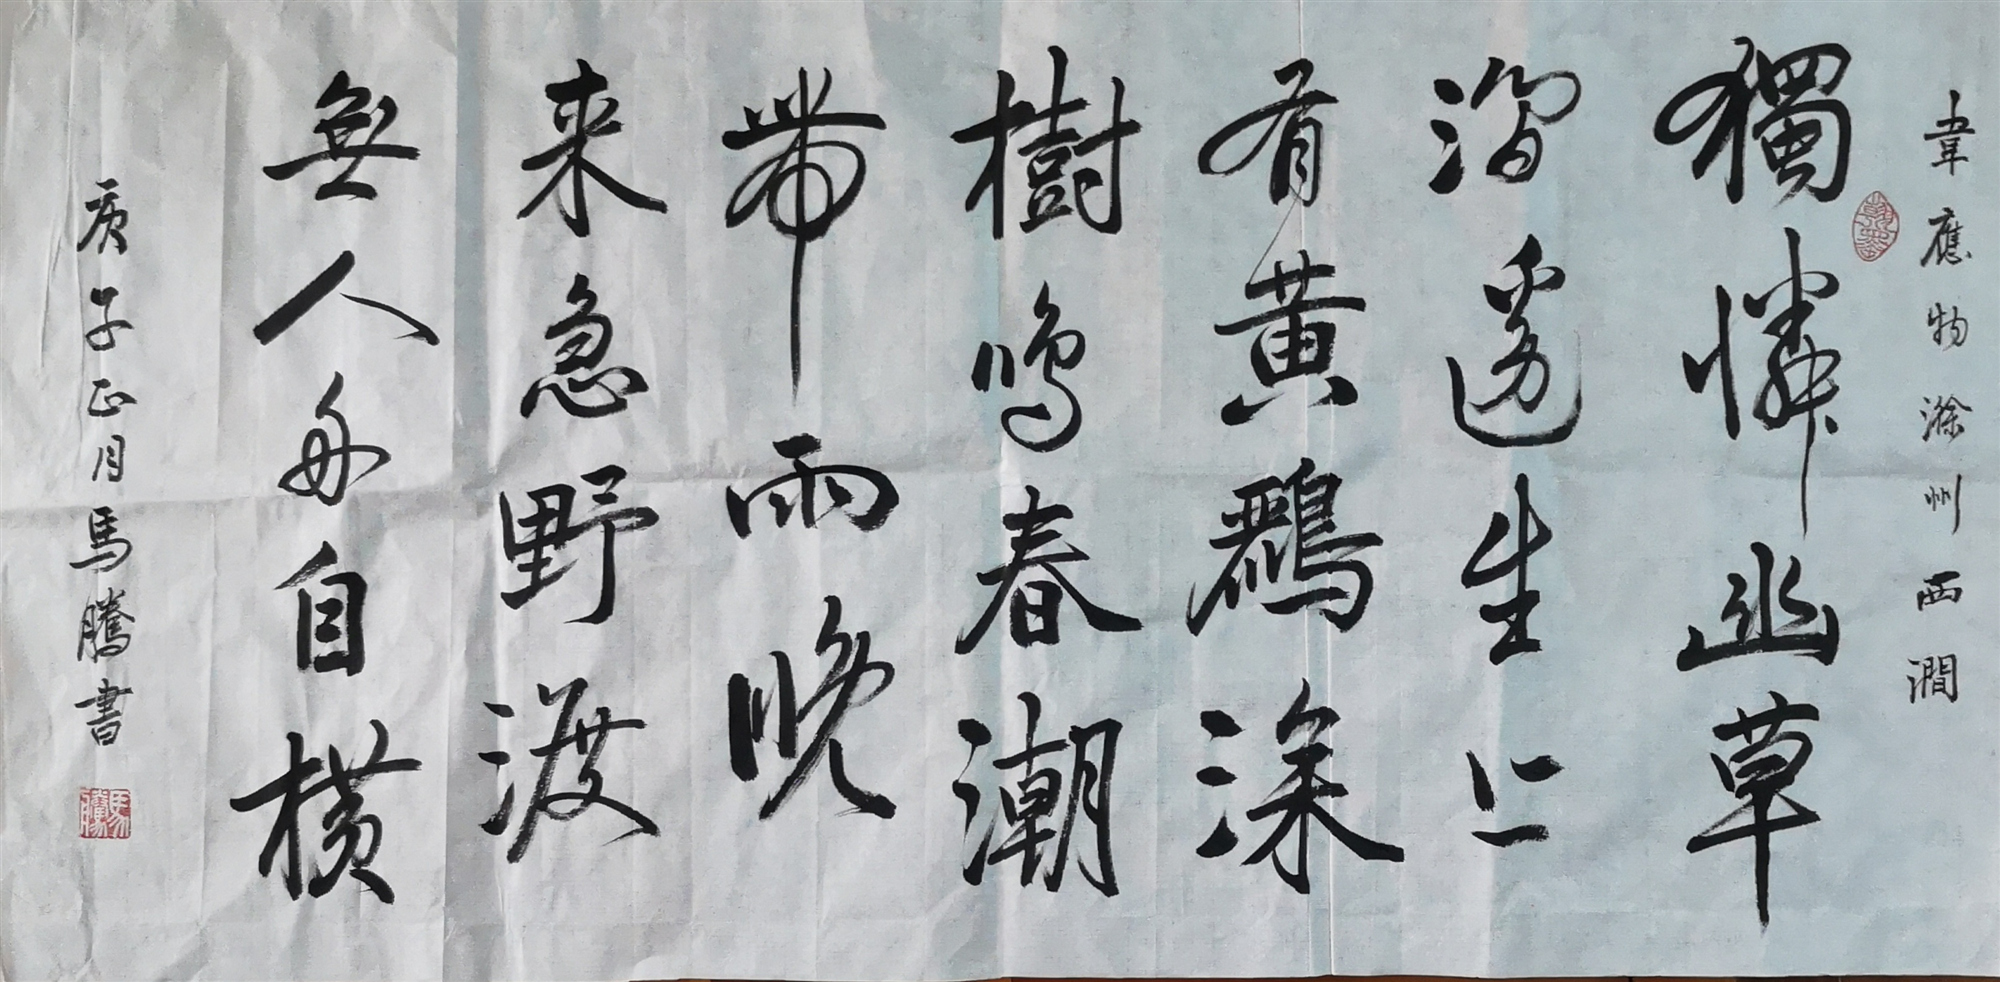 韋應物滁州西澗
獨憐幽草
澗邊生上
有黄鸝深
樹鳴春潮
帶雨晚
来急野渡
無人舟自横
庚子正月馬騰書
馬騰